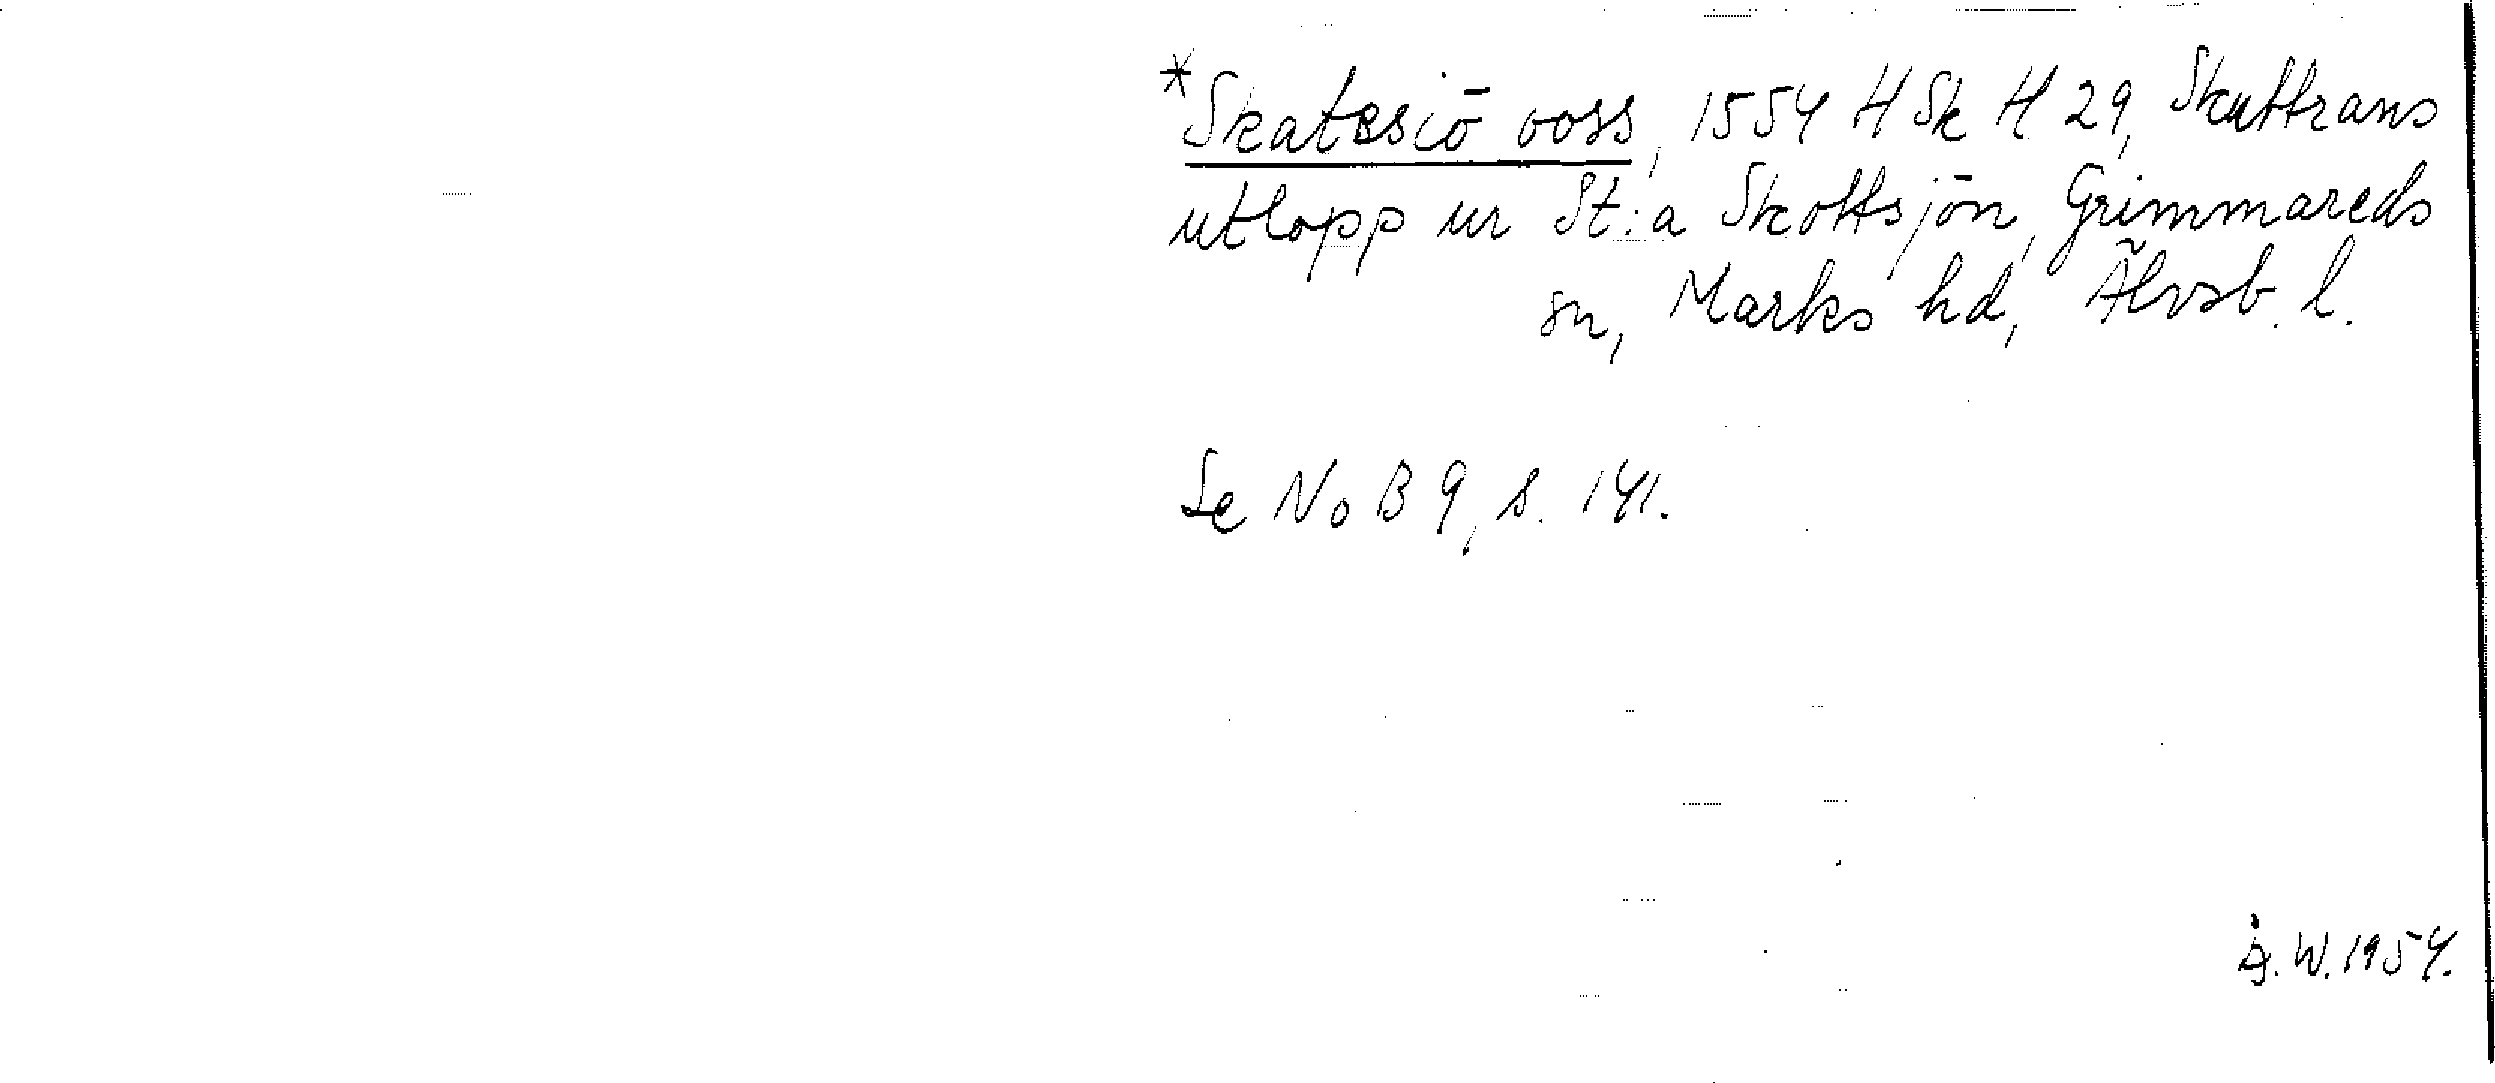 *Skatesiö ooss, 1554 HSk H 29, Skuttrans
utlopp ur St:a Skottsjön, Grimmareds
sn, Marks hd, Älvsb. l.
Se NoB 9, s. 141.
Å. W. 1954.